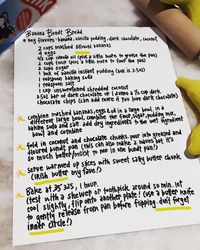 Banana Bundt Bread
* key flavors: banana, vanilla pudding, dark chocolate, coconut
2 cups mashed bananas
4 eggs
2 cups flour (plus a little more to flour the pan)
2 cups sugar
1 box of vanilla instant pudding
1 teaspoon baking soda
1 teaspoon salt
1 cup unsweetened shredded coconut
chocolate chips (can add more if you love dark chocolate)
combine mashed bananas, eggs, oil in a large bowl, in a
different large bowl, combine the flour, sugar, pudding mix,
baking soda and salt. add dry ingredients to the wet ingredient
bowl and combine
fold in coconut and chocolate chunks. pour into greased and
floured bundt pan (this can also make 2 loaves but it's
so much better/moist to me in one bundt pan!)
serve warmed up slices with sweet salty butter chunk
(irish butter my fave!)
Bake at 325 325, 1 hour.
(test with a skewer or toothpick around 50 min. let
cool slightly, flip onto another plate! (use a butter knife
to gently release from pan before flipping, don't forget
inner circle!)